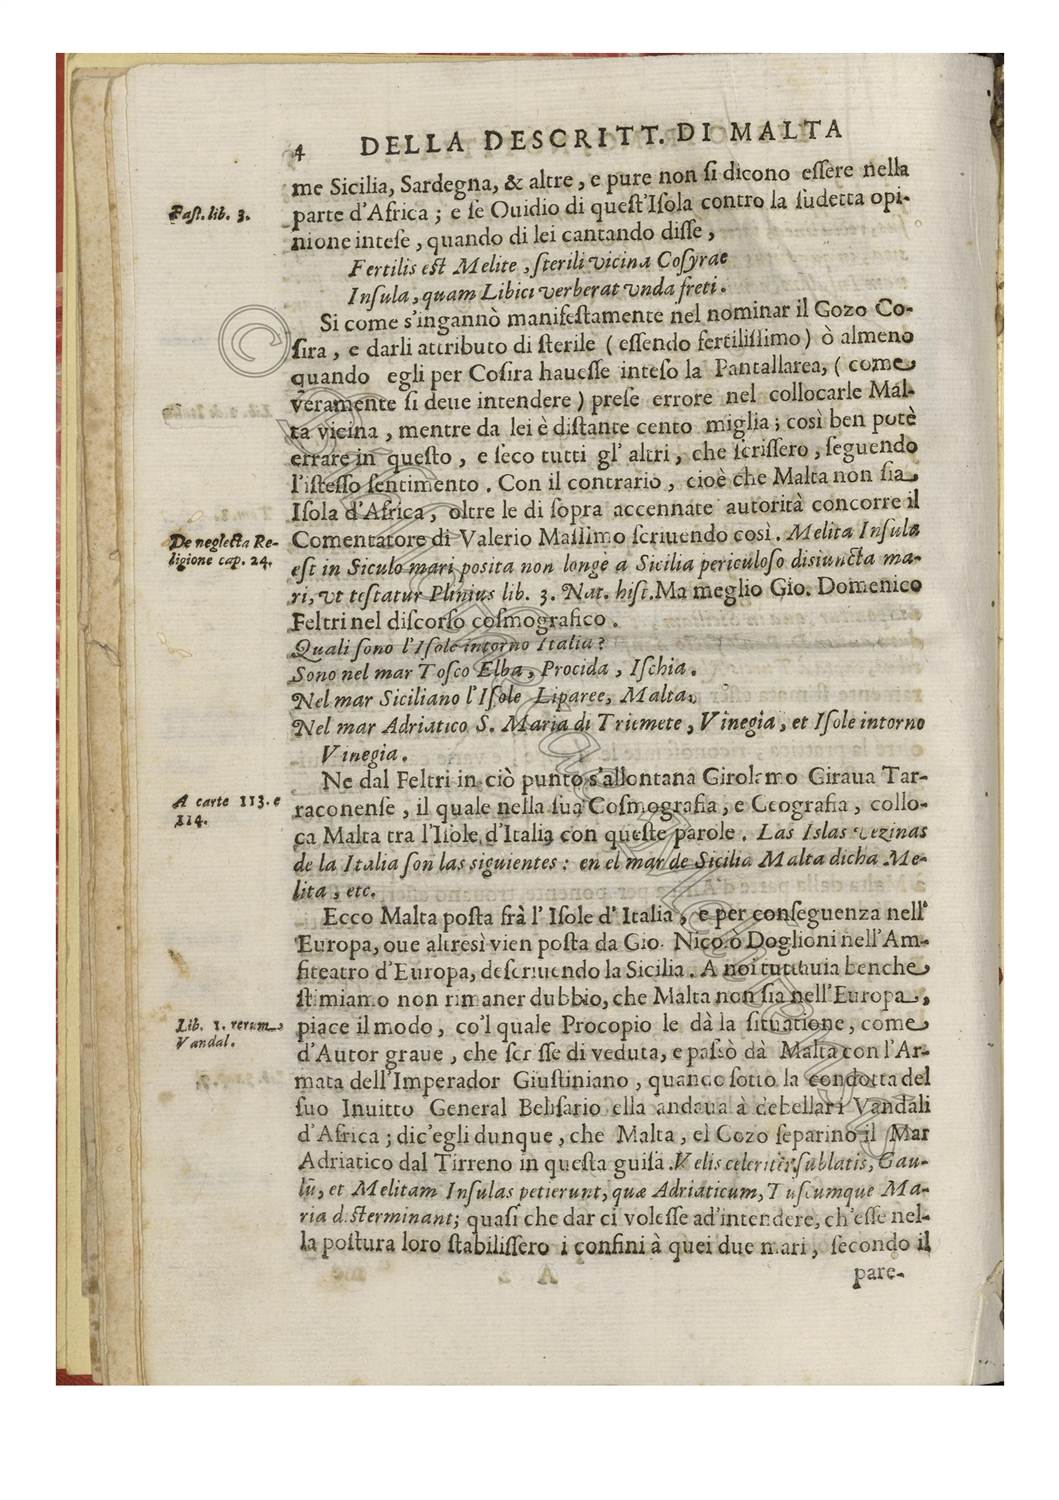 4 DELLA DESCRITT. DI MALTA
me Sicilia, Sardegna, & altre, e pure non ſi dicono eſſere nella
Faſt. lib. 3.
parte d'Africa; e ſe Ouidio di queſt'Iſola contro la ſudetta opi-
nione inteſe, quando di lei cantando diſſe,
Fertilis eſt Melite, ſterili vicina Coſyrae
Inſula, quam Libici verberat vnda freti.
Si come s'ingannò manifeſtamente nel nominar il Gozo Co-
ſira, e darli attributo di ſterile (eſſendo fertiliſſimo) ò almeno
quando egli per Coſira haueſſe inteſo la Pantallarea, (come
veramente ſi deue intendere) preſe errore nel collocarle Mal-
ta vicina, mentre da lei è diſtante cento miglia; così ben potè
errare in queſto, e ſeco tutti gl' altri, che ſcriſſero, ſeguendo
l'iſteſſo ſentimento. Con il contrario, cioè che Malta non ſia
Iſola d'Africa, oltre le di ſopra accennate autorità concorre il
De neglecta Re-
ligione cap. 24.
Comentatore di Valerio Maſſimo ſcriuendo così. Melita Inſula
eſt in Siculo mari poſita non longè a Sicilia periculoſo disiuncta ma-
ri, vt teſtatur Plinius lib. 3. Nat. hiſt. Ma meglio Gio. Domenico
Feltri nel diſcorſo coſmografico.
Quali ſono l'Iſole intorno Italia?
Sono nel mar Toſco Elba, Procida, Iſchia.
Nel mar Siciliano l'Iſole Liparee, Malta,
Nel mar Adriatico S. Maria di Triemete, Vinegia, et Iſole intorno
Vinegia.
Ne dal Feltri in ciò punto s'allontana Girolamo Giraua Tar-
A carte 113. e
114.
raconenſe, il quale nella ſua Coſmografia, e Geografia, collo-
ca Malta tra l'Iſole d'Italia con queſte parole. Las Islas vezinas
de la Italia ſon las siguientes: en el mar de Sicilia Malta dicha Me-
lita, etc.
Ecco Malta poſta frà l' Iſole d' Italia, e per conſeguenza nell'
Europa, oue altresì vien poſta da Gio. Nicolò Doglioni nell'Am-
fiteatro d'Europa, deſcriuendo la Sicilia. A noi tuttauia benche
ſtimiamo non rimaner dubbio, che Malta non ſia nell'Europa,
Lib. 1. rerum
Vandal.
piace il modo, co'l quale Procopio le dà la ſituatione, come
d'Autor graue, che ſcriſſe di veduta, e paſsò dà Malta con l'Ar-
mata dell'Imperador Giuſtiniano, quando ſotto la condotta del
ſuo Inuitto General Beliſario ella andaua à debellar i Vandali
d'Africa; dic'egli dunque, che Malta, el Gozo ſeparino il Mar
Adriatico dal Tirreno in queſta guiſa. Velis celeritèr ſublatis, Gau-
lũ, et Melitam Inſulas petierunt, quæ Adriaticum, Tuſcumque Ma-
ria diſterminant; quaſi che dar ci voleſſe ad'intendere, ch'eſſe nel-
la poſtura loro ſtabiliſſero i confini à quei due mari, ſecondo il
pare-